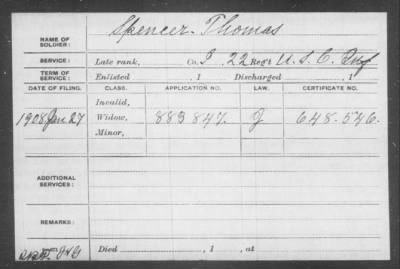 NAME OF SOLDIER: Spencer Thomas
SERVICE: Late rank, Co. I, 22 Reg't U. S. C. Inf
TERM OF SERVICE: Enlisted , 1 Discharged , 1
DATE OF FILING. CLASS. APPLICATION NO. LAW. CERTIFICATE NO.
Invalid,
1908 Jan 27 Widow, 883847. J 648-546.
Minor,
ADDITIONAL SERVICES:
REMARKS:
Died , 1 , at